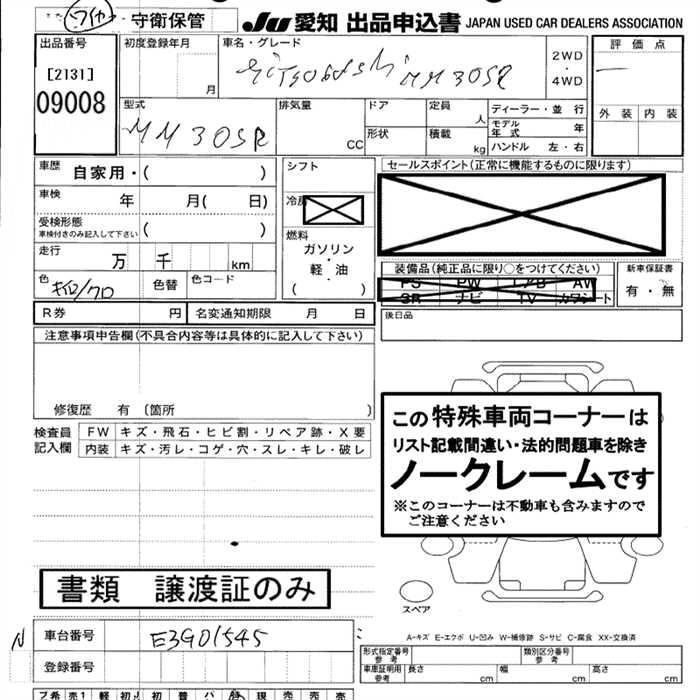 ワイヤ 守衛保管 JU 愛知 出品申込書 JAPAN USED CAR DEALERS ASSOCIATION
出品番号
[2131]
09008
初度登録年月
月
車名・グレード
MITSUBISHI MM30SR
2WD
・
4WD
評価点
外装 内装
型式
MM30SR
排気量
CC
ドア
形状
定員
人
積載
kg
ディーラー・並行
モデル年式 年
ハンドル 左・右
車歴 自家用・( )
車検 年 月( 日)
受検形態
車検付きのみ記入して下さい ( )
走行 万 千 km
色 キイロ/クロ
色替
色コード
シフト
冷房
燃料
ガソリン
・
軽・油
( )
セールスポイント(正常に機能するものに限ります)
装備品(純正品に限り○をつけてください)
PS PW エアB AW
SR ナビ TV カワシート
新車保証書
有・無
R券 円
名変通知期限 月 日
後日品
注意事項申告欄(不具合内容等は具体的に記入して下さい)
修復歴 有〔箇所 〕
検査員
記入欄
FW キズ・飛石・ヒビ割・リペア跡・X要
内装 キズ・汚レ・コゲ・穴・スレ・キレ・破レ
この特殊車両コーナーは
リスト記載間違い・法的問題車を除き
ノークレームです
※このコーナーは不動車も含みますので
ご注意ください
スペア
書類 譲渡証のみ
A-キズ E-エクボ U-凹み W-補修跡 S-サビ C-腐食 XX-交換済
N 車台番号 E3G01545
登録番号
形式指定番号
参考
類別区分番号
参考
車車証明用
参考
長さ cm
幅 cm
高さ cm